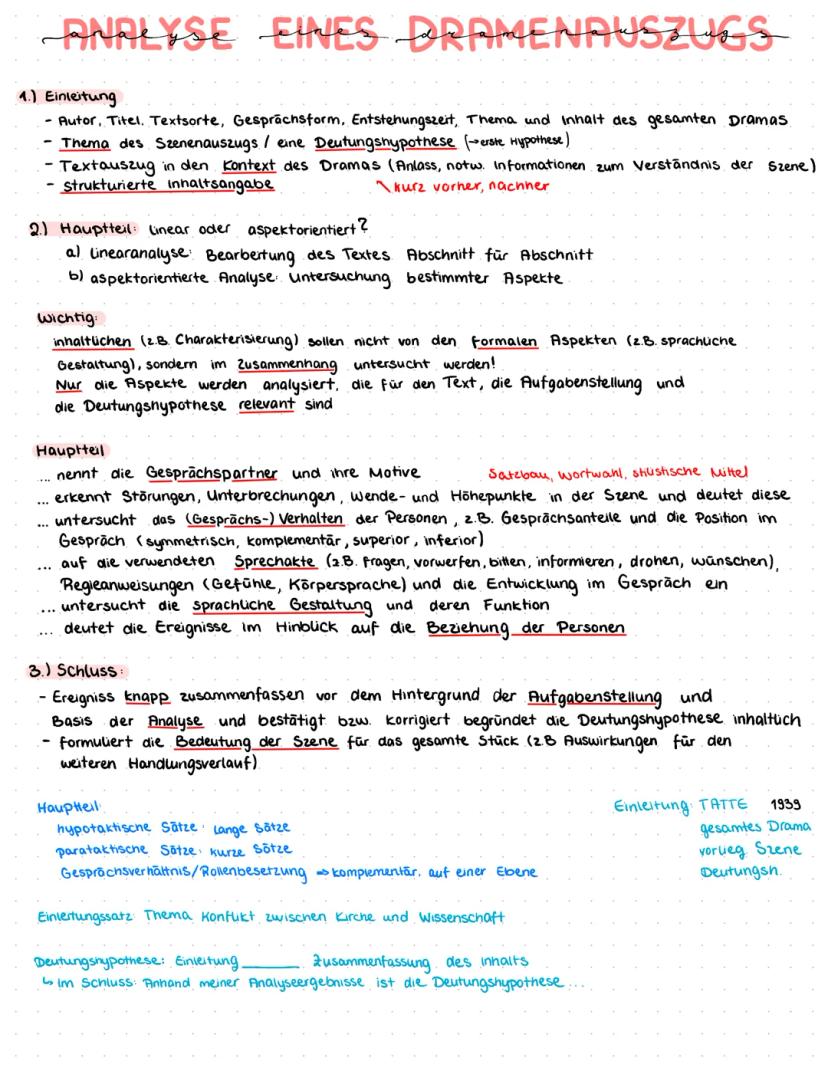 ANALYSE EINES DRAMENAUSZUGS
analyse eines dramenauszugs
1.) Einleitung
- Autor, Titel, Textsorte, Gesprächsform, Entstehungszeit, Thema und Inhalt des gesamten Dramas
- Thema des Szenenauszugs / eine Deutungshypothese (→erste Hypothese)
- Textauszug in den Kontext des Dramas (Anlass, notw. Informationen zum Verständnis der Szene)
- strukturierte Inhaltsangabe kurz vorher, nachher
2.) Hauptteil: linear oder aspektorientiert?
a) Linearanalyse: Bearbeitung des Textes Abschnitt für Abschnitt
b) aspektorientierte Analyse: Untersuchung bestimmter Aspekte
Wichtig:
inhaltlichen (z.B. Charakterisierung) sollen nicht von den formalen Aspekten (z.B. sprachliche
Gestaltung), sondern im Zusammenhang untersucht werden!
Nur die Aspekte werden analysiert, die für den Text, die Aufgabenstellung und
die Deutungshypothese relevant sind
Hauptteil
... nennt die Gesprächspartner und ihre Motive Satzbau, Wortwahl, stilistische Mittel
... erkennt Störungen, Unterbrechungen, Wende- und Höhepunkte in der Szene und deutet diese
... untersucht das (Gesprächs-) Verhalten der Personen, z.B. Gesprächsanteile und die Position im
Gespräch (symmetrisch, komplementär, superior, inferior)
... auf die verwendeten Sprechakte (z.B. fragen, vorwerfen, bitten, informieren, drohen, wünschen),
Regieanweisungen (Gefühle, Körpersprache) und die Entwicklung im Gespräch ein
... untersucht die sprachliche Gestaltung und deren Funktion
... deutet die Ereignisse im Hinblick auf die Beziehung der Personen
3.) Schluss:
- Ereigniss knapp zusammenfassen vor dem Hintergrund der Aufgabenstellung und
Basis der Analyse und bestätigt bzw. korrigiert begründet die Deutungshypothese inhaltlich
- formuliert die Bedeutung der Szene für das gesamte Stück (z.B Auswirkungen für den
weiteren Handlungsverlauf)
Hauptteil: Einleitung: TATTE 1939
hypotaktische Sätze: lange Sätze gesamtes Drama
parataktische Sätze: kurze Sätze vorlieg. Szene
Gesprächsverhältnis/Rollenbesetzung ⇒ komplementär, auf einer Ebene Deutungsh.
Einleitungssatz: Thema Konflikt zwischen Kirche und Wissenschaft
Deutungshypothese: Einleitung ______ Zusammenfassung des Inhalts
↳ Im Schluss: Anhand meiner Analyseergebnisse ist die Deutungshypothese ...